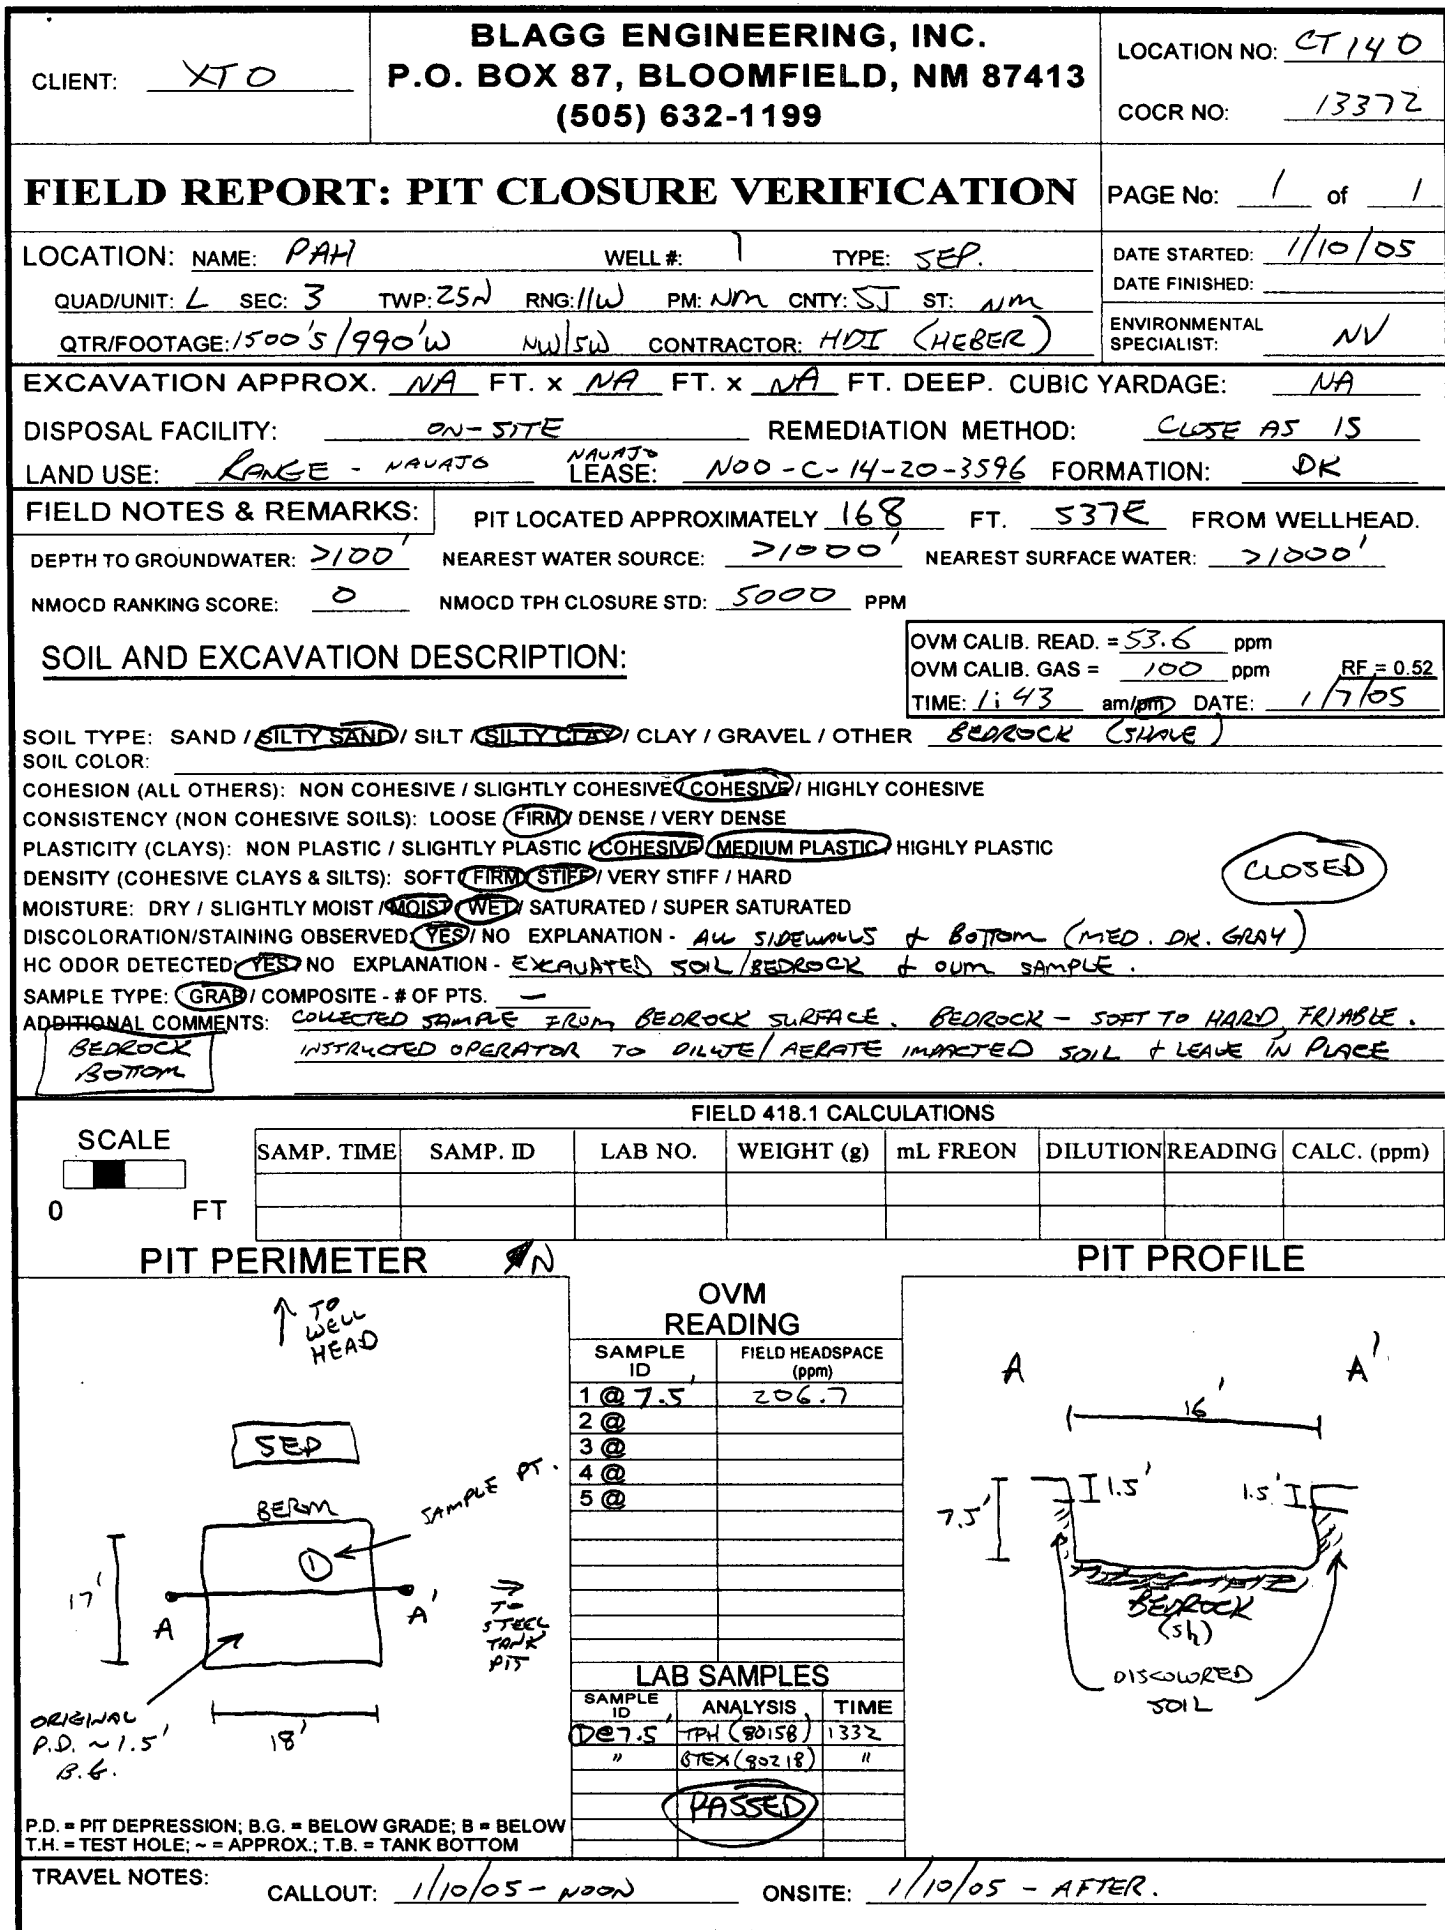 BLAGG ENGINEERING, INC.
P.O. BOX 87, BLOOMFIELD, NM 87413
(505) 632-1199
CLIENT: XTO
LOCATION NO: CT140
COCR NO: 13372
FIELD REPORT: PIT CLOSURE VERIFICATION
PAGE No: 1 of 1
LOCATION: NAME: PAH WELL #: 1 TYPE: SEP.
QUAD/UNIT: L SEC: 3 TWP: 25N RNG: 11W PM: NM CNTY: SJ ST: NM
QTR/FOOTAGE: 1500'S/990'W NW/SW CONTRACTOR: HDI (HEBER)
DATE STARTED: 1/10/05
DATE FINISHED:
ENVIRONMENTAL SPECIALIST: NV
EXCAVATION APPROX. NA FT. x NA FT. x NA FT. DEEP. CUBIC YARDAGE: NA
DISPOSAL FACILITY: ON-SITE REMEDIATION METHOD: CLOSE AS IS
LAND USE: RANGE - NAVAJO NAVAJO LEASE: NOO-C-14-20-3596 FORMATION: DK
FIELD NOTES & REMARKS: PIT LOCATED APPROXIMATELY 168 FT. S37E FROM WELLHEAD.
DEPTH TO GROUNDWATER: >100' NEAREST WATER SOURCE: >1000' NEAREST SURFACE WATER: >1000'
NMOCD RANKING SCORE: 0 NMOCD TPH CLOSURE STD: 5000 PPM
SOIL AND EXCAVATION DESCRIPTION:
OVM CALIB. READ. = 53.6 ppm
OVM CALIB. GAS = 100 ppm RF = 0.52
TIME: 1:43 am/pm DATE: 1/7/05
SOIL TYPE: SAND / SILTY SAND / SILT / SILTY CLAY / CLAY / GRAVEL / OTHER BEDROCK (SHALE)
SOIL COLOR:
COHESION (ALL OTHERS): NON COHESIVE / SLIGHTLY COHESIVE / COHESIVE / HIGHLY COHESIVE
CONSISTENCY (NON COHESIVE SOILS): LOOSE / FIRM / DENSE / VERY DENSE
PLASTICITY (CLAYS): NON PLASTIC / SLIGHTLY PLASTIC / COHESIVE / MEDIUM PLASTIC / HIGHLY PLASTIC
DENSITY (COHESIVE CLAYS & SILTS): SOFT / FIRM / STIFF / VERY STIFF / HARD
CLOSED
MOISTURE: DRY / SLIGHTLY MOIST / MOIST / WET / SATURATED / SUPER SATURATED
DISCOLORATION/STAINING OBSERVED: YES / NO EXPLANATION - ALL SIDEWALLS & BOTTOM (MED. DK. GRAY)
HC ODOR DETECTED: YES / NO EXPLANATION - EXCAVATED SOIL/BEDROCK & OVM SAMPLE.
SAMPLE TYPE: GRAB / COMPOSITE - # OF PTS. —
ADDITIONAL COMMENTS: COLLECTED SAMPLE FROM BEDROCK SURFACE. BEDROCK - SOFT TO HARD, FRIABLE.
INSTRUCTED OPERATOR TO DILUTE/AERATE IMPACTED SOIL & LEAVE IN PLACE
BEDROCK
BOTTOM
FIELD 418.1 CALCULATIONS
SCALE
0 FT
SAMP. TIME SAMP. ID LAB NO. WEIGHT (g) mL FREON DILUTION READING CALC. (ppm)
PIT PERIMETER N
TO WELL HEAD
SEP
BERM
SAMPLE PT.
1
17'
A A'
TO STEEL TANK PIT
18'
ORIGINAL P.D. ~ 1.5' B.G.
P.D. = PIT DEPRESSION; B.G. = BELOW GRADE; B = BELOW
T.H. = TEST HOLE; ~ = APPROX.; T.B. = TANK BOTTOM
OVM READING
SAMPLE ID FIELD HEADSPACE (ppm)
1 @ 7.5' 206.7
2 @
3 @
4 @
5 @
LAB SAMPLES
SAMPLE ID ANALYSIS TIME
1@7.5' TPH (8015B) 1332
" BTEX (8021B) "
PASSED
PIT PROFILE
A A'
16'
7.5' 1.5' 1.5'
BEDROCK
(sh)
DISCOLORED SOIL
TRAVEL NOTES: CALLOUT: 1/10/05 - NOON ONSITE: 1/10/05 - AFTER.